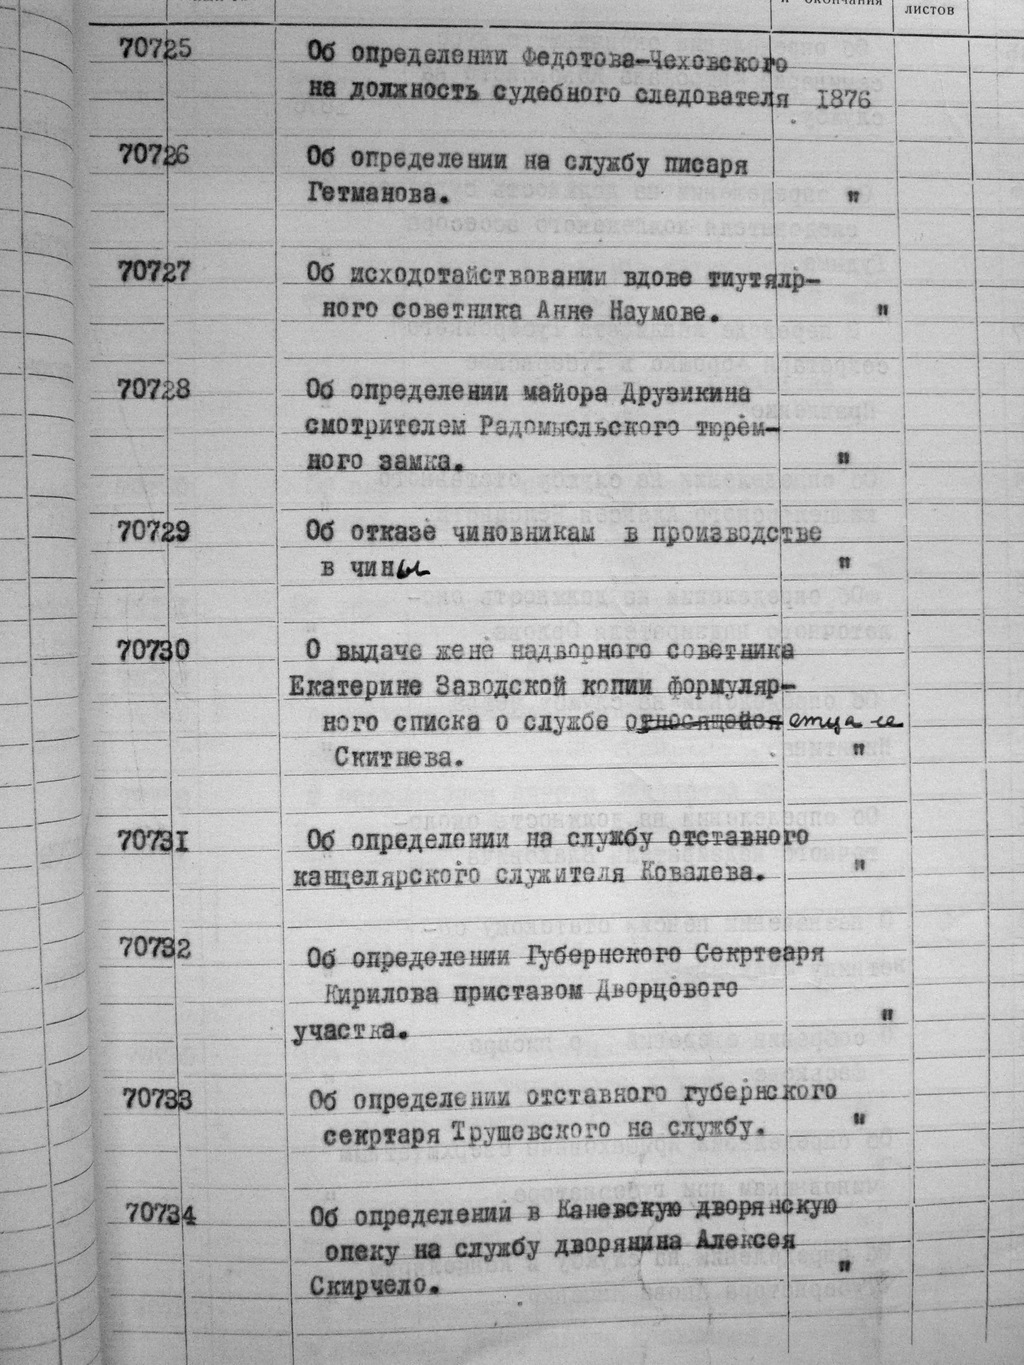 и окончания
листов
70725 Об определении Федотова-Чеховского
на должность судебного следователя 1876
70726 Об определении на службу писаря
Гетманова. "
70727 Об исходотайствовании вдове тиутялр-
ного советника Анне Наумове. "
70728 Об определении майора Друзикина
смотрителем Радомысльского тюрем-
ного замка. "
70729 Об отказе чиновникам в производстве
в чины "
70730 О выдаче жене надворного советника
Екатерине Заводской копии формуляр-
ного списка о службе относящейся отца ее
Скитнева. "
70731 Об определении на службу отставного
канцелярского служителя Ковалева. "
70732 Об определении Губернского Секртеаря
Кирилова приставом Дворцового
участка. "
70733 Об определении отставного губернского
секртаря Трушевского на службу. "
70734 Об определении в Каневскую дворянскую
опеку на службу дворянина Алексея
Скирчело. "